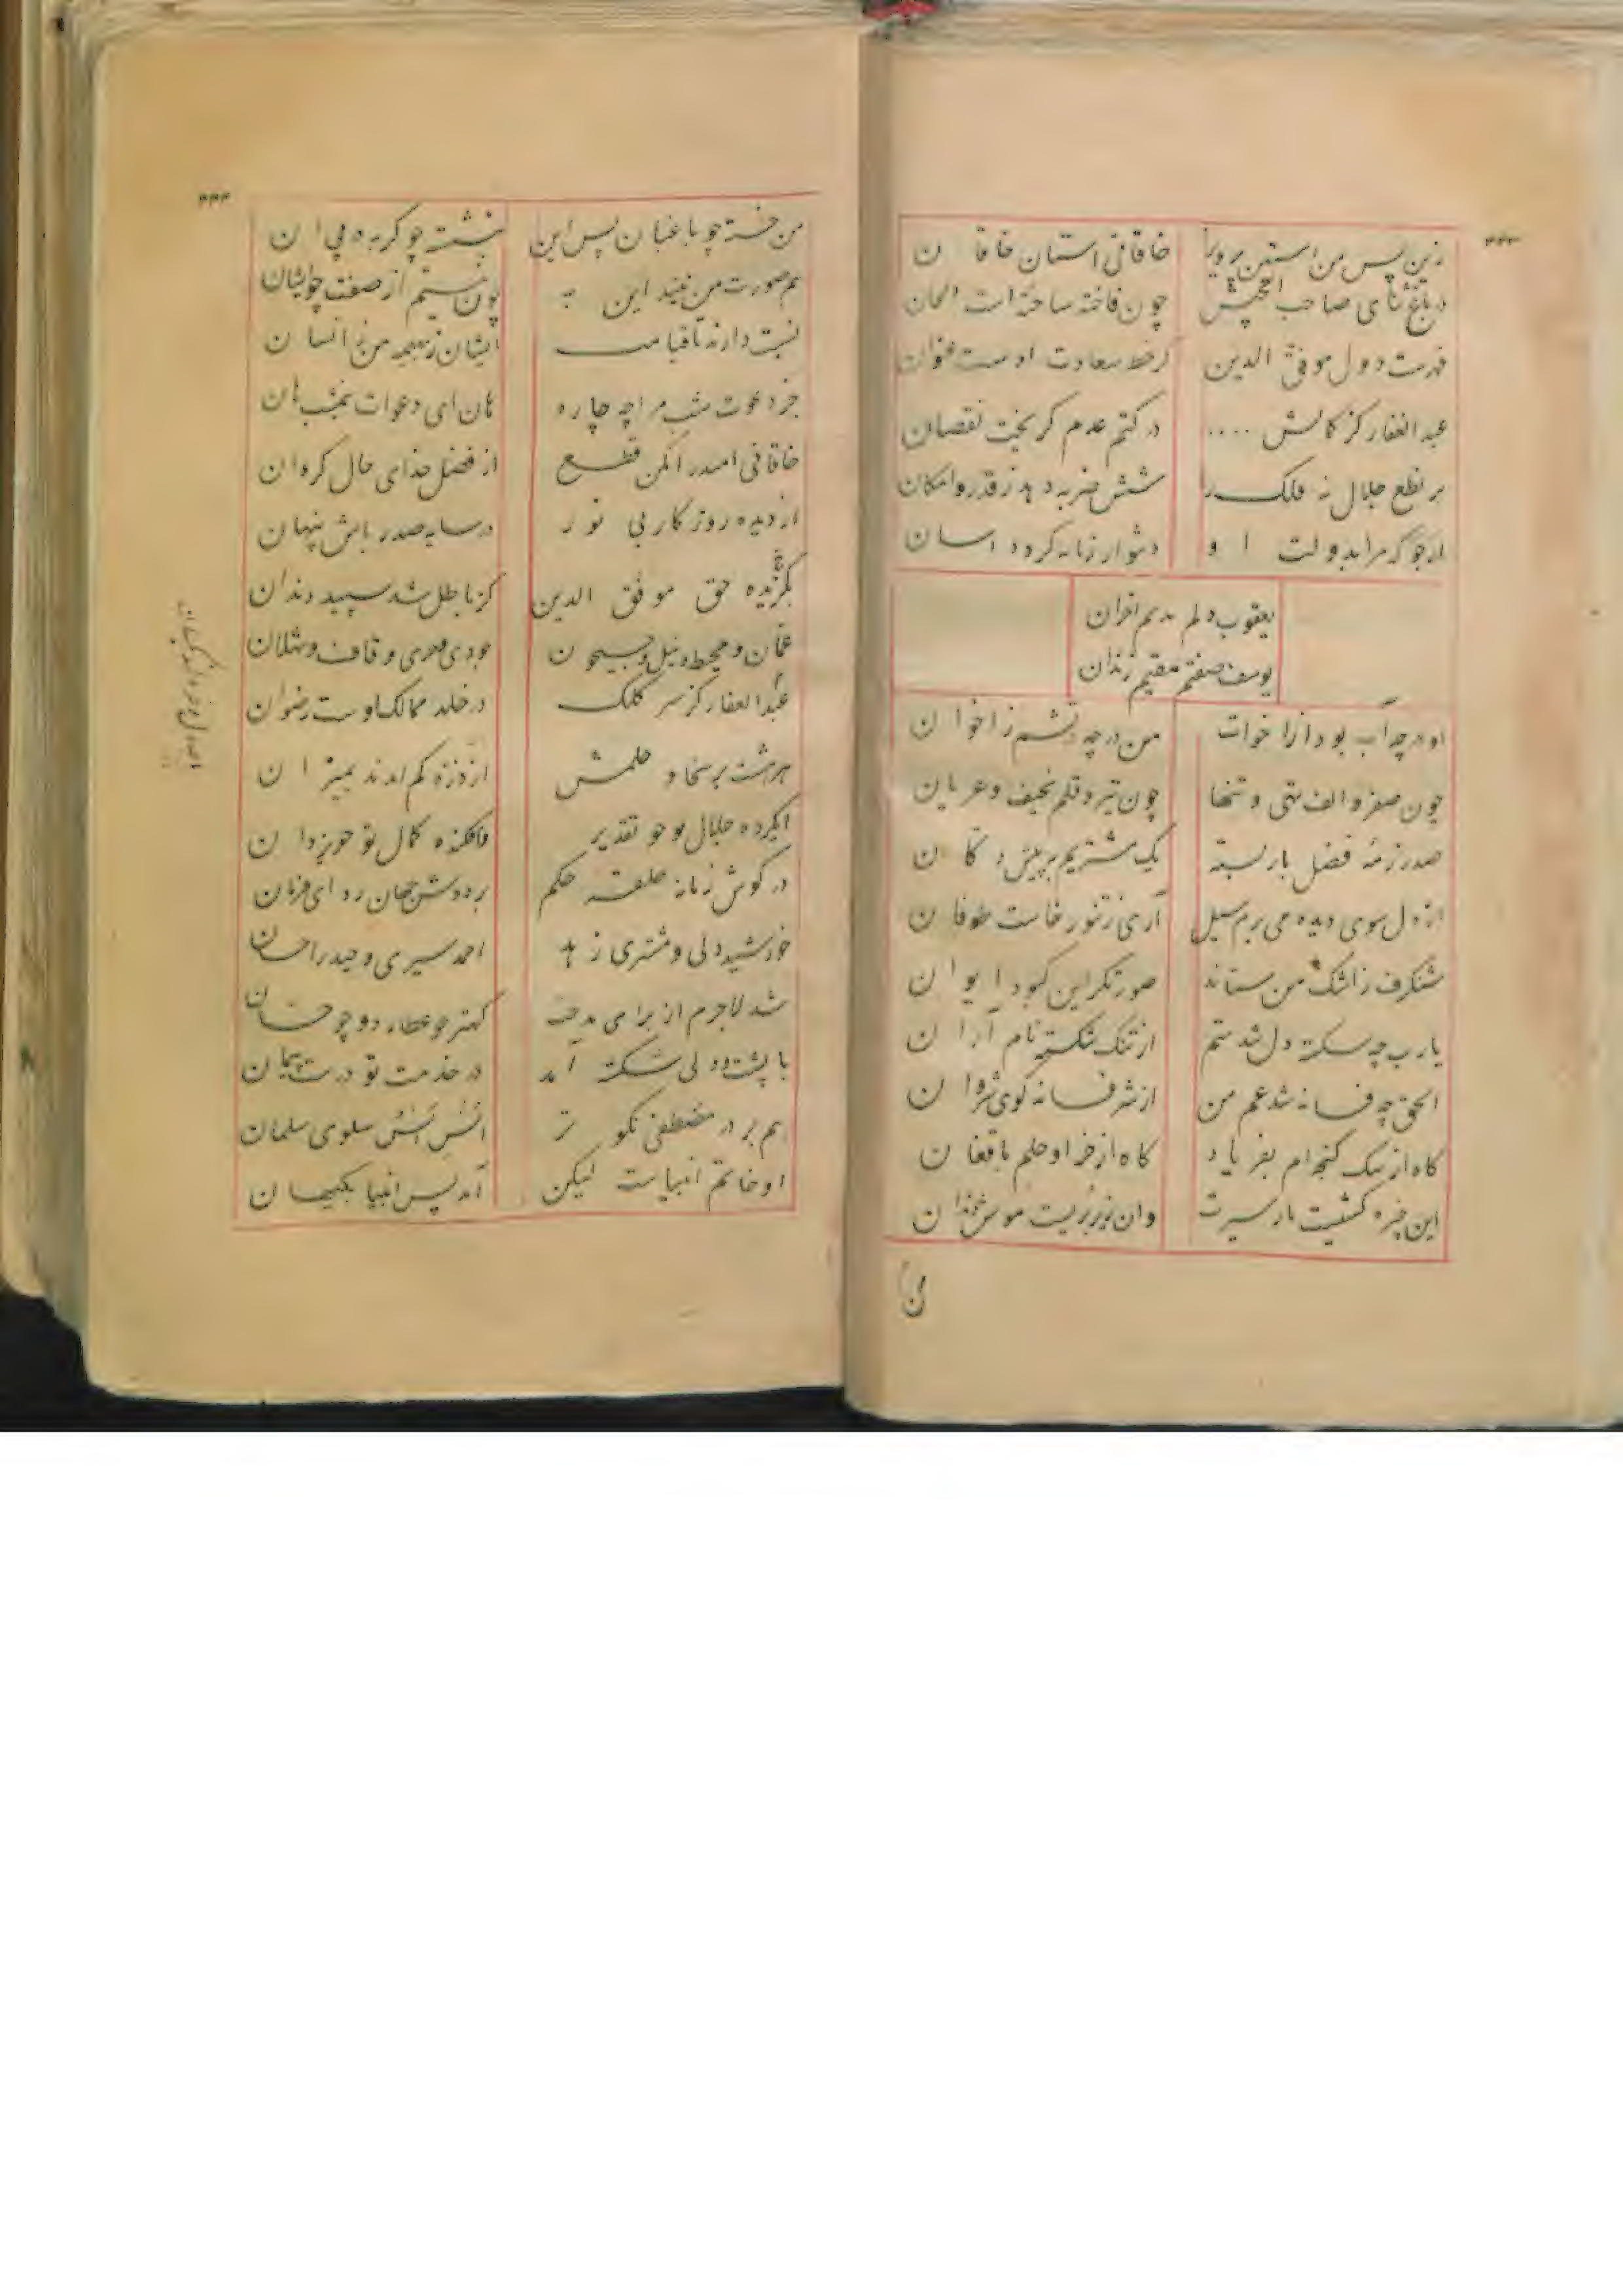 ۴۴۳
زین پس من و آستین پرویز خاقانی استان خاقان
در باغ ثنای صاحب الجیش چون فاخته ساخته است الحان
فهرست دول موفق الدین کز خط سعادت اوست عنوان
عبد الغفار کز کمالش .... در کتم عدم گریخت نقصان
بر نطع جلال نه فلک را شش ضربه دهد ز قدر و امکان
ارجو که مرا بدولت او دشوار زمانه کردد اسان
یعقوب دلم ندیم احزان
یوسف صفتم مقیم زندان
او در چه آب بود از اخوات من در چه آتشم ز اخوان
چون صفر و الف تهی و تنها چون تیر و قلم نحیف و عریان
صد رزمهٔ فضل بار بسته یک مشتریم بر پیش دکان
از دل سوی دیده می برم سیل آری ز تنور خاست طوفان
شنکرف ز اشک من ستاند صورتکر این کبود ایوان
یارب چه شکسته دل شدستم از ننک شکسته نام آران
الحق چه فسانه شد غم من از شر فسانه کوی شروان
کاه از سک کنجه ام بفریاد کاه از خر او حلم بافغان
این خیره کشیست مار سیرت وان موش
من خسته چو باغبان پس این بنشسته چو کربه در پی ان
هم صورت من نیند این به چون نیستم از صفت چو ایشان
نسبت دارند تا قیامت ایشان ز بهیمه من ز انسان
جز دعوت شب مرا چه چاره هان ای دعوات نیم شب هان
خاقانی امید را مکن قطع از فضل خدای حال کردان
از دیده روزکار بی نور در سایه صدر باش پنهان
بکزیده حق موفق الدین کز باطل شد سپید دندان
عمان و محیط و نیل و جیحون جودی و حری و قاف و شهلان
عبدالغفار کز سر کلک در خلد ممالک اوست رضوان
هر هشت بر سخا و حلمش از ذره کم امدند بمیزان
در کوش زمانه حلقه حکم بر دوش جهان ردای فرمان
خورشید دلی و مشتری زهد احمد سیری و حیدر احسان
شد لاجرم از برای مدحت کهتر چو عطارد و چو حسان
با پشت و دلی شکسته آمد در خدمت تو درست پیمان
هم بر در مصطفی نکوتر سلوی سلمان
او خاتم انبیاست لیکن آمد پس انبیا بکیهان